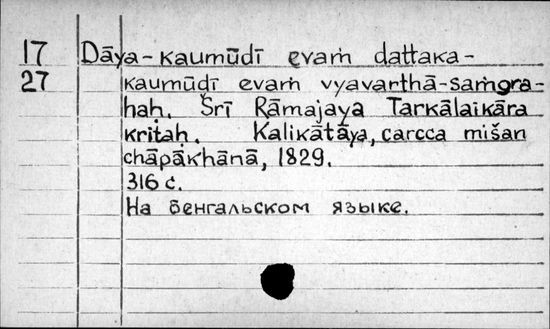 17 Dāya-kaumūdī evaṁ dattaka-
27 kaumūdī evaṁ vyavarthā-saṁgra-
haḥ. Šrī Rāmajaya Tarkālaikāra
kritaḥ. Kalikātāya, carcca mišan
chāpākhānā, 1829.
316 с.
На бенгальском языке.